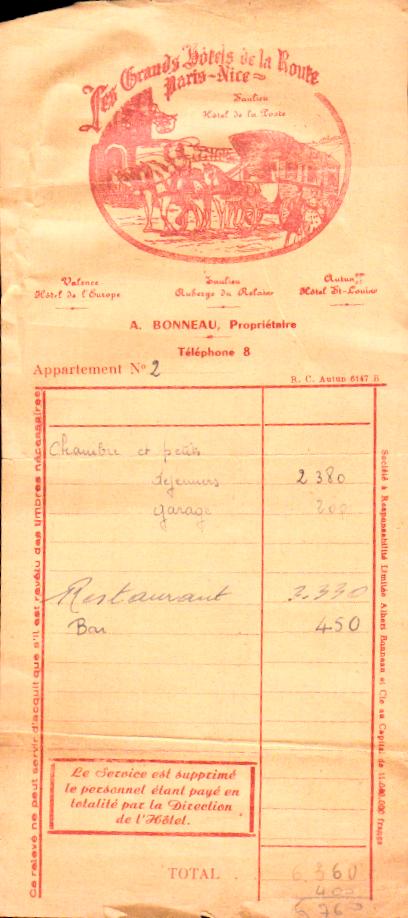 Les Grands Hôtels de la Route
Paris-Nice
Saulieu
Hôtel de la Poste
Valence
Hôtel de l'Europe
Saulieu
Auberge du Relais
Autun
Hôtel St-Louis
A. BONNEAU, Propriétaire
Téléphone 8
Appartement N° 2
R. C. Autun 6147 B
Chambre et petits
déjeuners 2 380
garage 200
Restaurant 3.330
Bar 450
Le Service est supprimé
le personnel étant payé en
totalité par la Direction
de l'Hôtel.
TOTAL 6.360
400
6 760
Ce relevé ne peut servir d'acquit que s'il est revêtu des timbres nécessaires
Société à Responsabilité Limitée Albert Bonneau et Cie au Capital de 11.000.000 francs